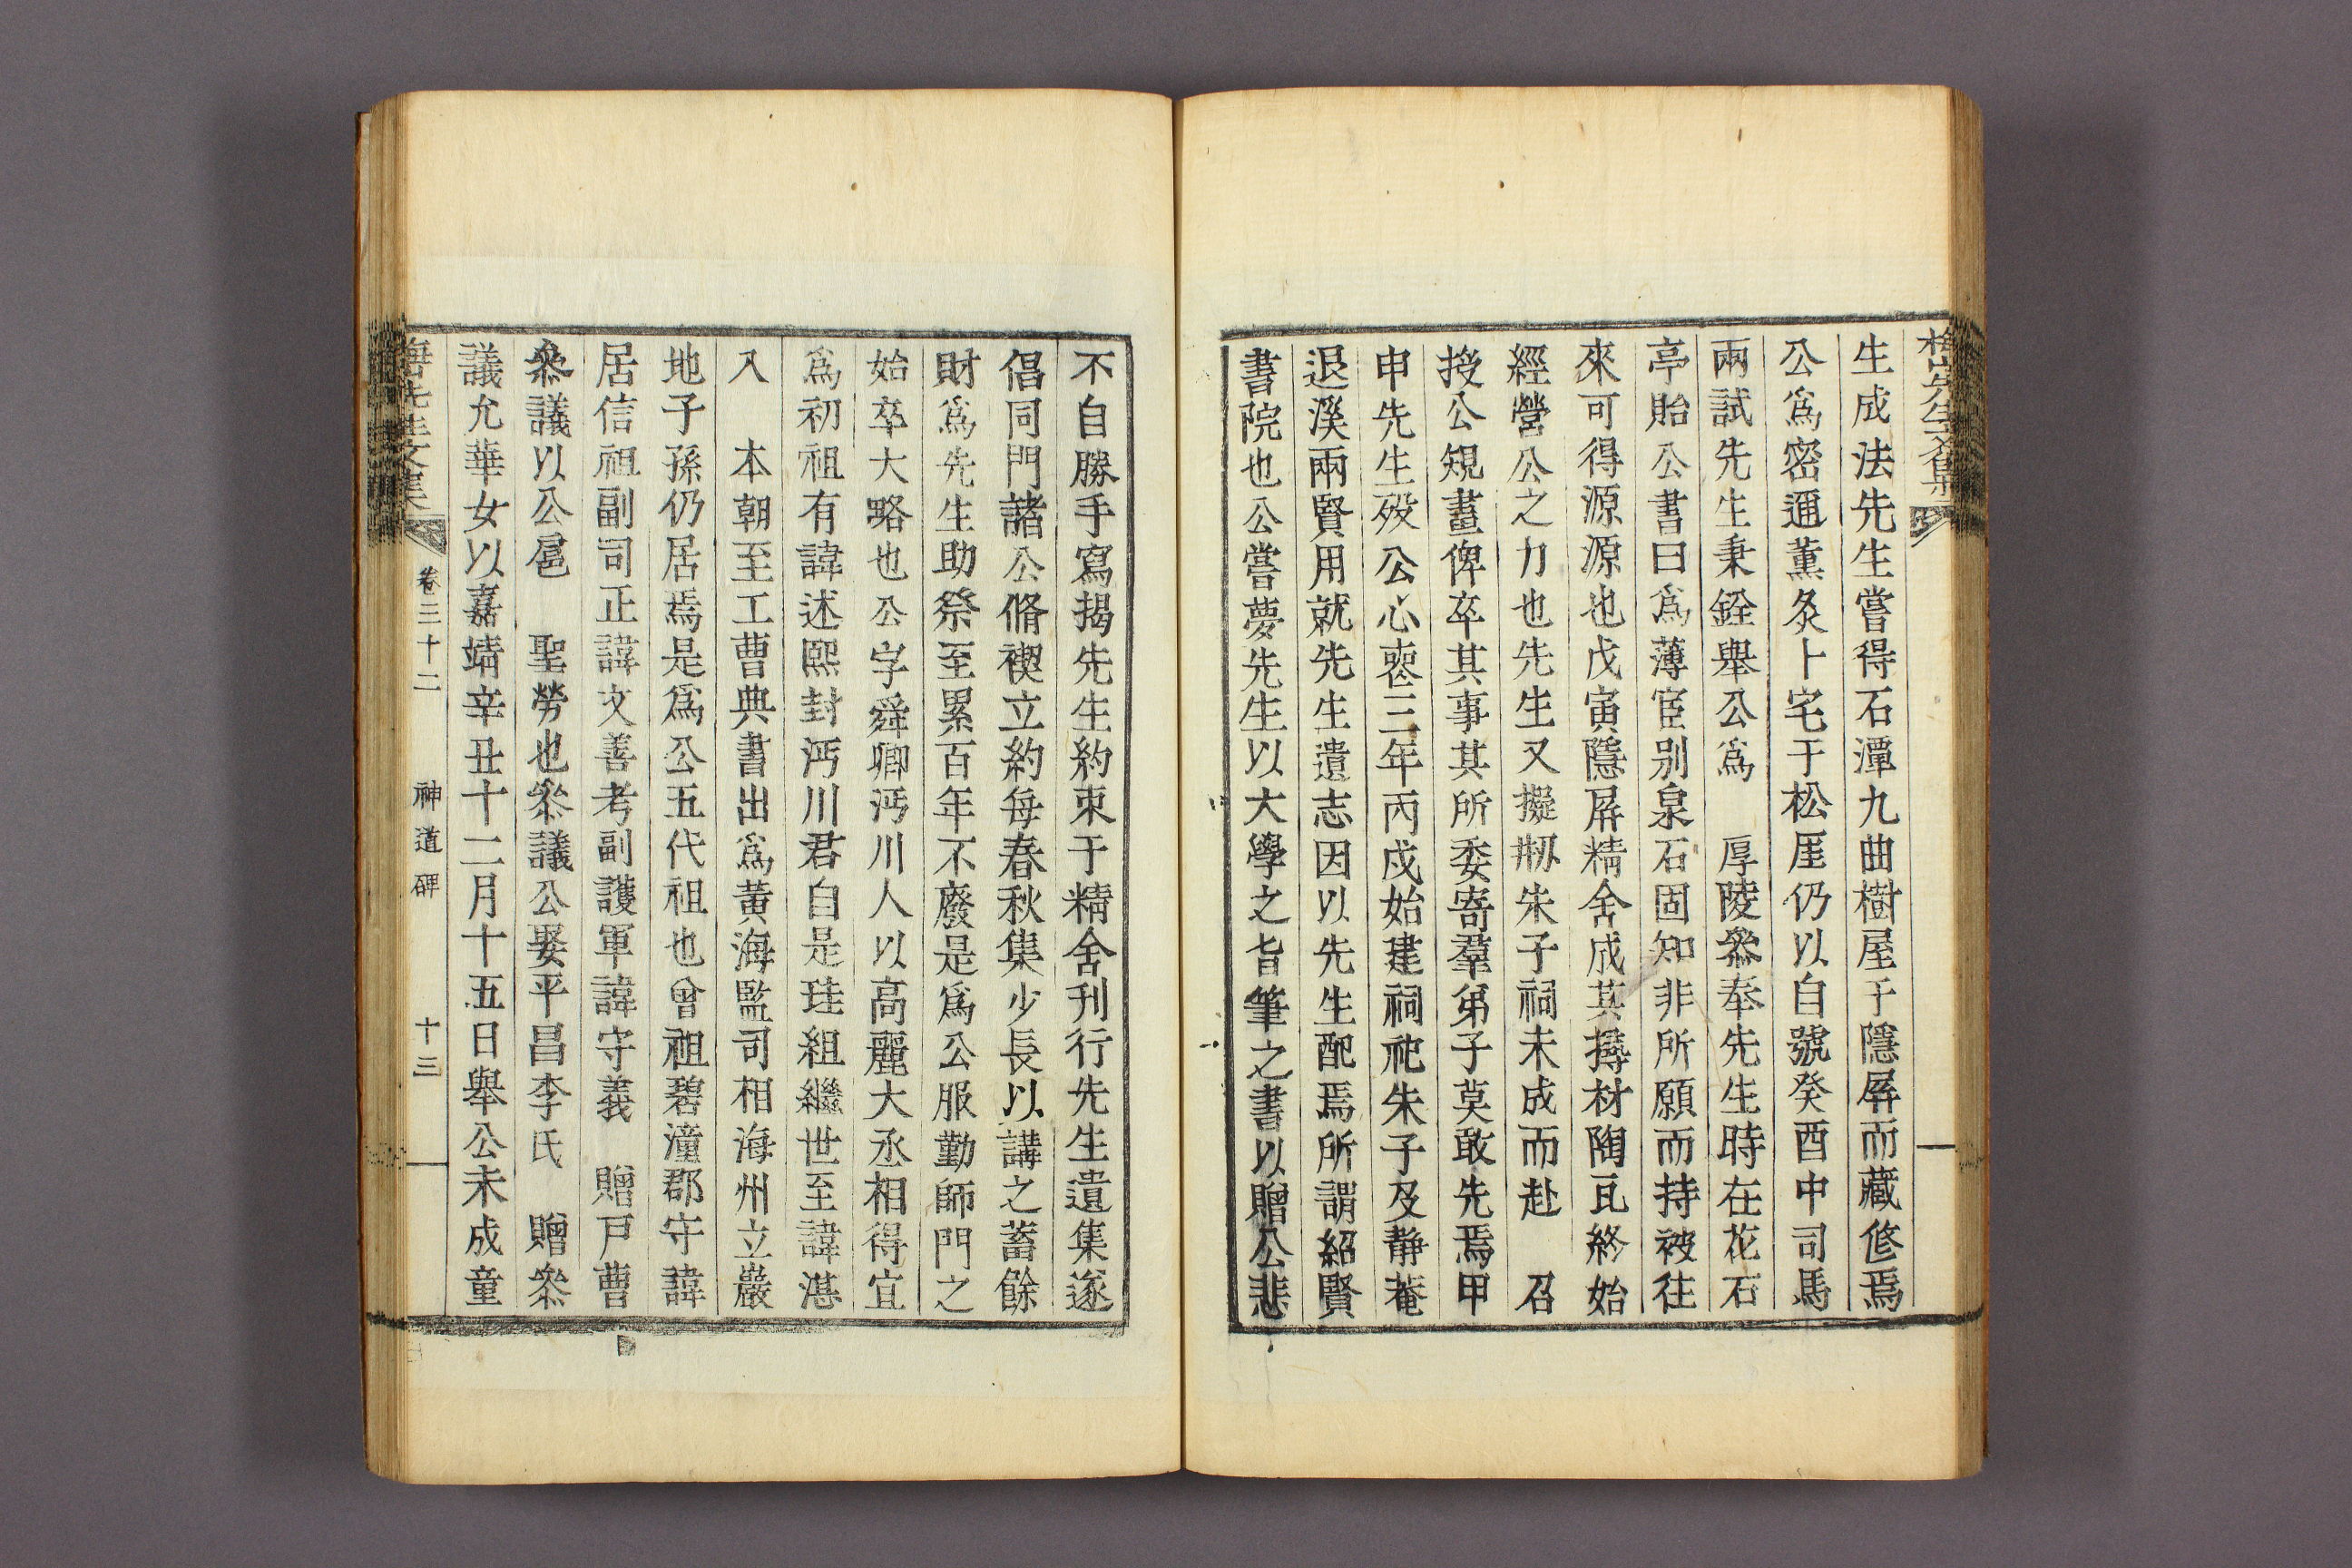 生成法先生嘗得石潭九曲樹屋于隱屏而藏修焉
公爲密邇薰炙卜宅于松厓仍以自號癸酉中司馬
兩試先生秉銓舉公爲 厚陵叅奉先生時在花石
亭貽公書曰爲薄宦別泉石固知非所願而持被往
來可得源源也戊寅隱屏精舍成其撏材陶瓦終始
經營公之力也先生又擬刱朱子祠未成而赴 召
授公規畫俾卒其事其所委寄羣弟子莫敢先焉甲
申先生歿公心喪三年丙戌始建祠祀朱子及靜菴
退溪兩賢用就先生遺志因以先生配焉所謂紹賢
書院也公嘗夢先生以大學之旨筆之書以贈公悲
不自勝手寫揭先生約束于精舍刊行先生遺集遂
倡同門諸公脩禊立約每春秋集少長以講之蓄餘
財爲先生助祭至累百年不廢是爲公服勤師門之
始卒大略也公字舜卿沔川人以高麗大丞相得宜
爲初祖有諱述熙封沔川君自是珪組繼世至諱湛
入 本朝至工曹典書出爲黃海監司相海州立巖
地子孫仍居焉是爲公五代祖也曾祖碧潼郡守諱
居信祖副司正諱文善考副護軍諱守義 贈戶曹
叅議以公扈 聖勞也叅議公娶平昌李氏 贈叅
議允華女以嘉靖辛丑十二月十五日舉公未成童
先生文集 卷三十二 神道碑 十三